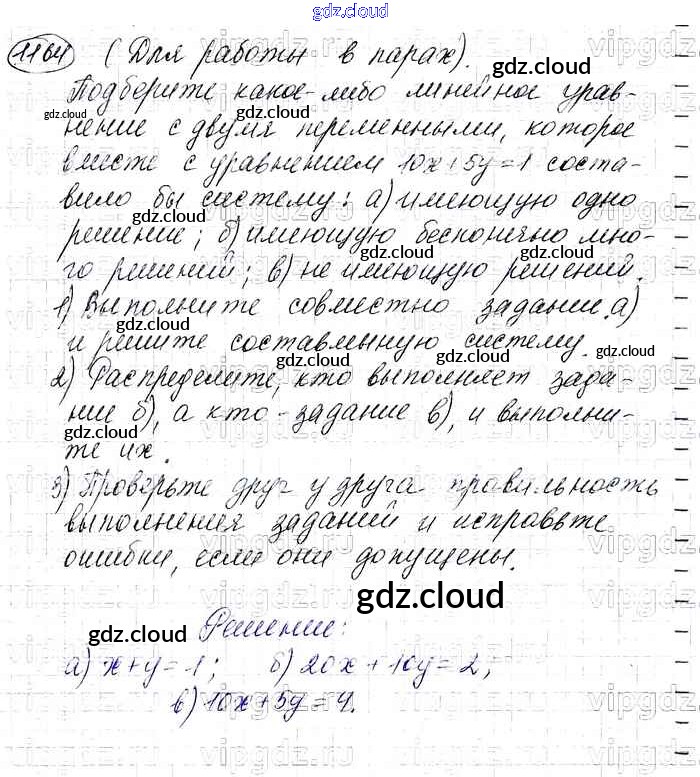 gdz.cloud
1164 (Для работы в парах).
gdz.cloud
Подберите какое-либо линейное урав-
gdz.cloud gdz.cloud
нение с двумя переменными, которое
вместе с уравнением 10x+5y=1 соста-
вило бы систему: а) имеющую одно
gdz.cloud
решение; б) имеющую бесконечно мно-
gdz.cloud
го решений; в) не имеющую решений.
1) Выполните совместно задание а)
gdz.cloud
и решите составленную систему.
gdz.cloud
2) Распределите, кто выполняет зада-
ние б), а кто - задание в), и выполни-
gdz.cloud
те их.
3) Проверьте друг у друга правильность
выполнения заданий и исправьте
ошибки, если они допущены.
gdz.cloud
gdz.cloud Решение:
а) x+y=1; б) 20x+10y=2;
в) 10x+5y=4.